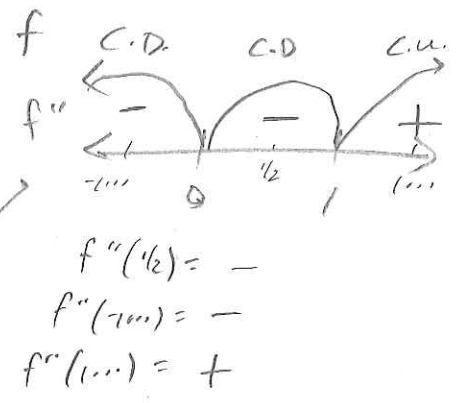 f C.D. C.D C.U.
f" − − +
-1... 0 1/2 1 1...
f"(1/2) = −
f"(-1...) = −
f"(1...) = +